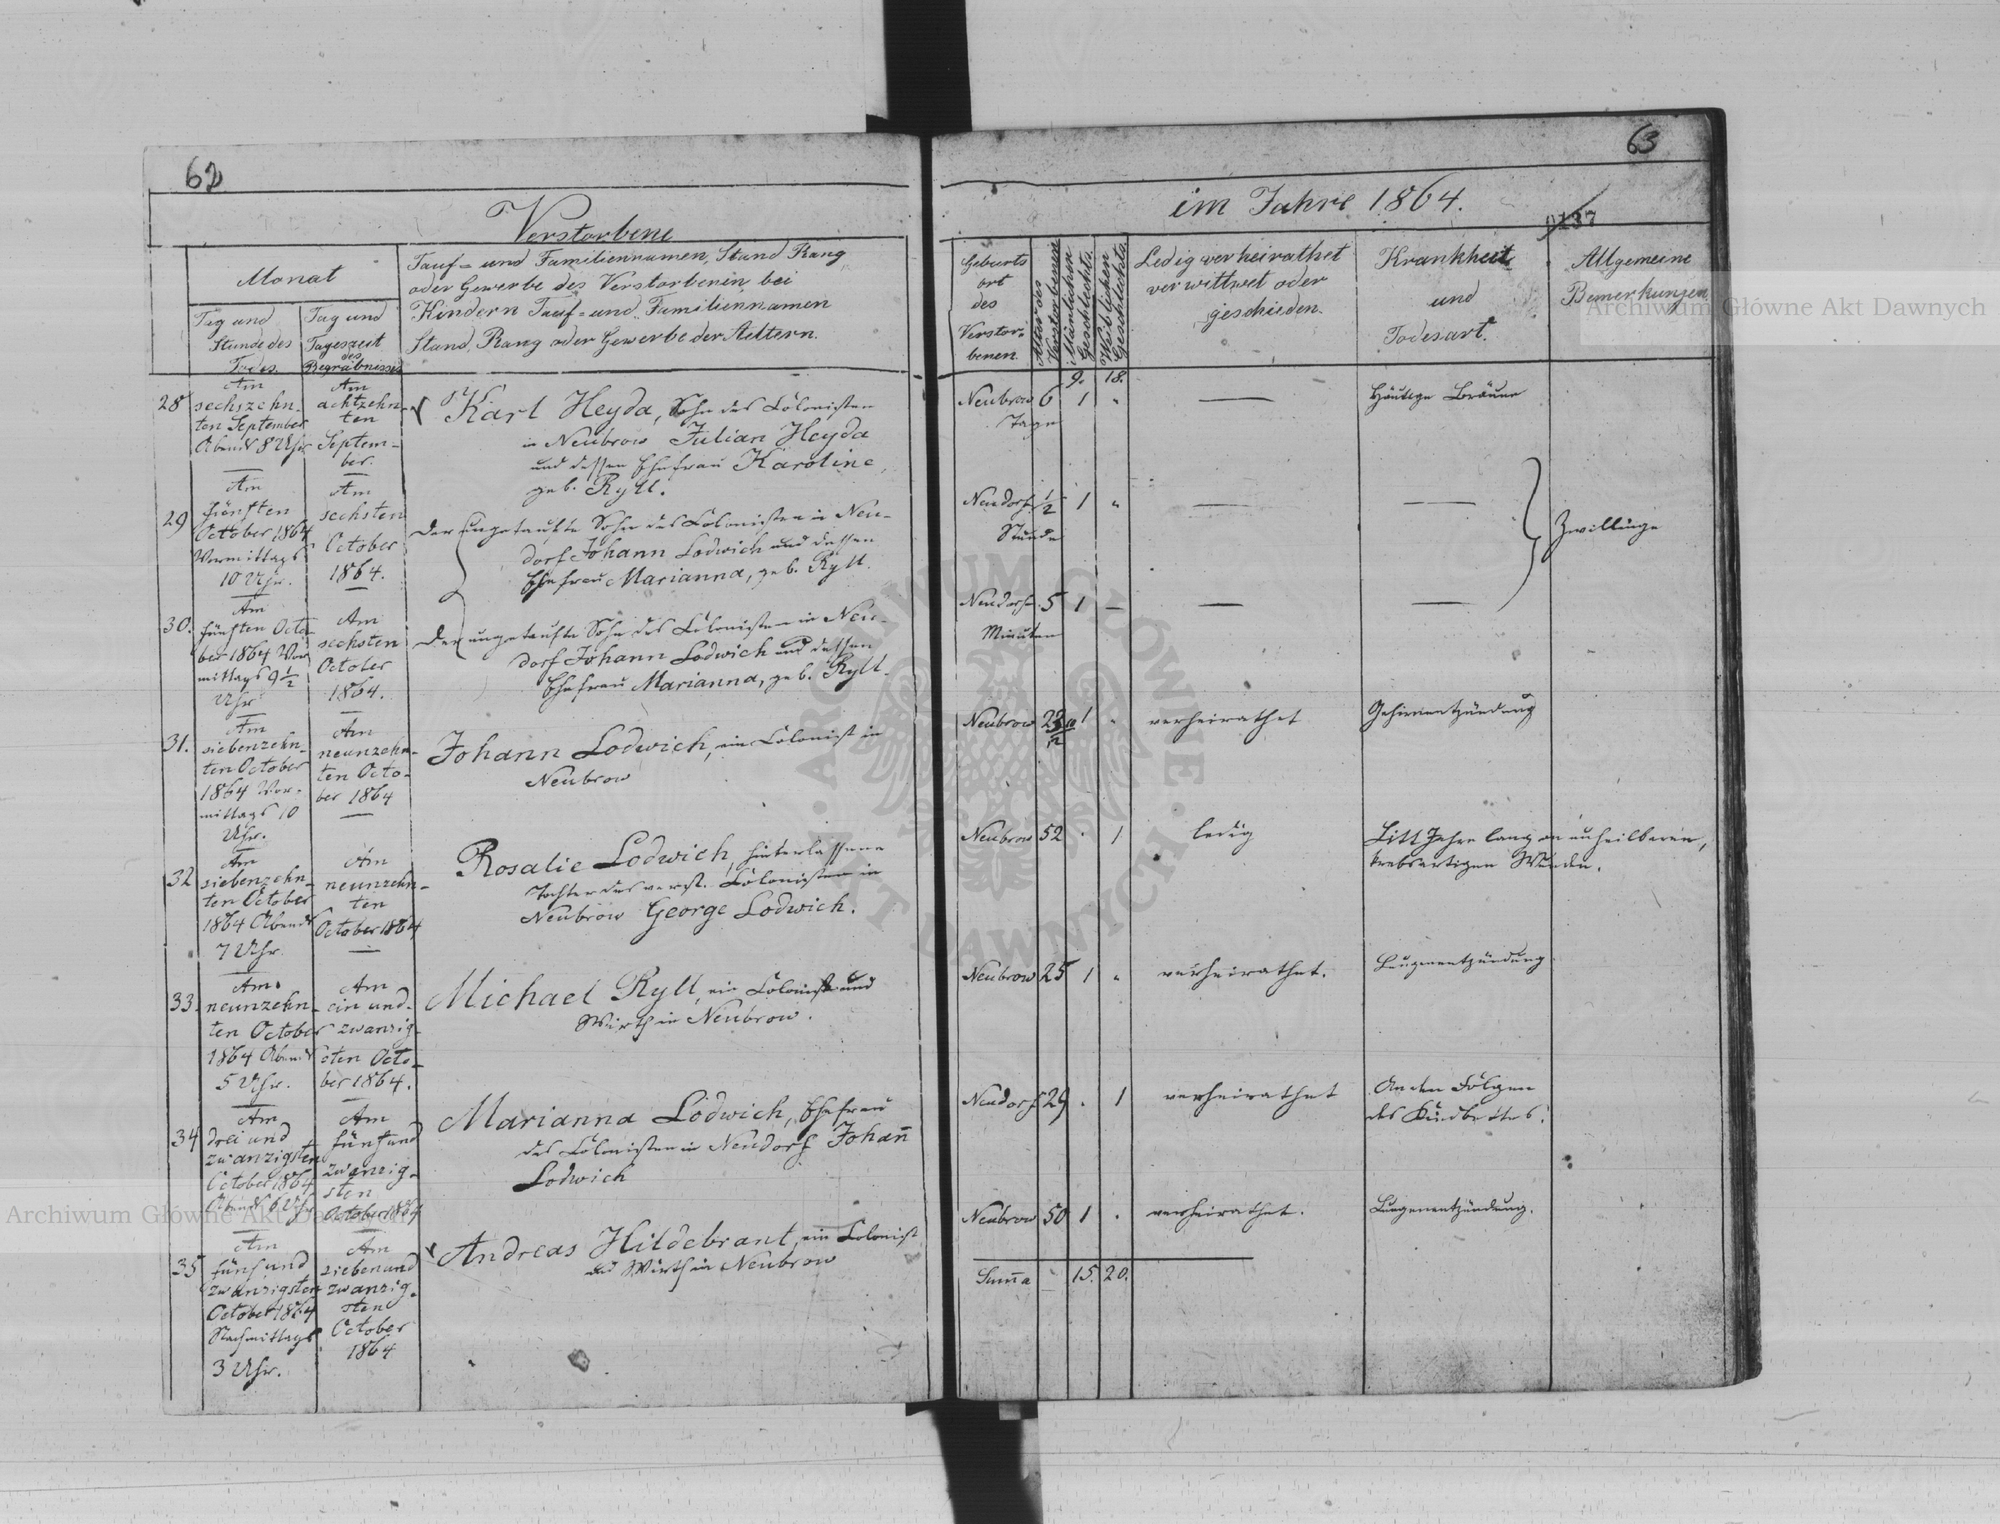 62
Verstorbene
Monat
Tag und
Stunde des
Todes.
Tag und
Tageszeit
des
Begräbnisses
Tauf- und Familiennamen, Stand Rang
oder Gewerbe des Verstorbenen, bei
Kindern Tauf- und Familiennamen
Stand, Rang oder Gewerbe der Aeltern.
28
Am
sechszehn-
ten September
Abends 8 Uhr
Am
achtzehn-
ten
Septem-
ber.
Karl Heyda, Sohn des Colonisten
in Neubrow Julian Heyda
und dessen Ehefrau Karoline,
geb. Ryll.
29
Am
fünften
October 1864
Vormittags
10 Uhr.
Am
sechsten
October
1864.
Der ungetaufte Sohn des Colonisten in Neu-
dorf Johann Lodwich und dessen
Ehefrau Marianna, geb. Ryll.
30.
Am
fünften Octo-
ber 1864 Vor
mittags 9 1/2
Uhr
Am
sechsten
October
1864.
Der ungetaufte Sohn des Colonisten in Neu-
dorf Johann Lodwich und dessen
Ehefrau Marianna, geb. Ryll.
31.
Am
siebenzehn-
ten October
1864 Vor-
mittags 10
Uhr.
Am
neunzehn-
ten Octo-
ber 1864
Johann Lodwich, ein Colonist in
Neubrow
32
Am
siebenzehn-
ten October
1864 Abends
7 Uhr.
Am
neunzehn-
ten
October 1864
Rosalie Lodwich, hinterlassene
Tochter des verst. Colonisten in
Neubrow George Lodwich.
33.
Am
neunzehn-
ten October
1864 Abends
5 Uhr.
Am
ein und-
zwanzig-
sten Octo-
ber 1864.
Michael Ryll, ein Colonist und
Wirth in Neubrow.
34
Am
drei und
zwanzigsten
October 1864
Abends 6 Uhr
Am
fünf und
zwanzig-
sten
October 1864
Marianna Lodwich, Ehefrau
des Colonisten in Neudorf Johan̄
Lodwich
35
Am
fünf und
zwanzigsten
October 1864
Nachmittags
3 Uhr.
Am
sieben und
zwanzig-
sten
October
1864
Andreas Hildebrant, ein Colonist
und Wirth in Neubrow
63
im Jahre 1864.
Geburts
ort
des
Verstor-
benen.
Alter des
Verstorbenen
Männlichen
Geschlechts.
Weiblichen
Geschlechts.
Ledig verheirathet
verwittwet oder
geschieden.
Krankheit
und
Todesart.
Allgemeine
Bemerkungen
9. 18.
Neubrow 6 1 "
Tage
Häutige Bräune
Neudorf 1/2 1 "
Stunde
Zwillinge
Neudorf 5 1 —
Minuten
Neubrow 1 " verheirathet Gehirnentzündung
Neubrow 52 . 1 ledig Litt Jahre lang an unheilbaren,
krebsartigen Wunden.
Neubrow 25 1 " verheirathet. Lungenentzündung
Neudorf 29 . 1 verheirathet An den Folgen
des Kindbettes.
Neubrow 50 1 . verheirathet. Lungenentzündung.
Sum̄a 15. 20.
Archiwum Główne Akt Dawnych
Archiwum Główne Akt Dawnych
ARCHIWUM GŁÓWNE
AKT DAWNYCH